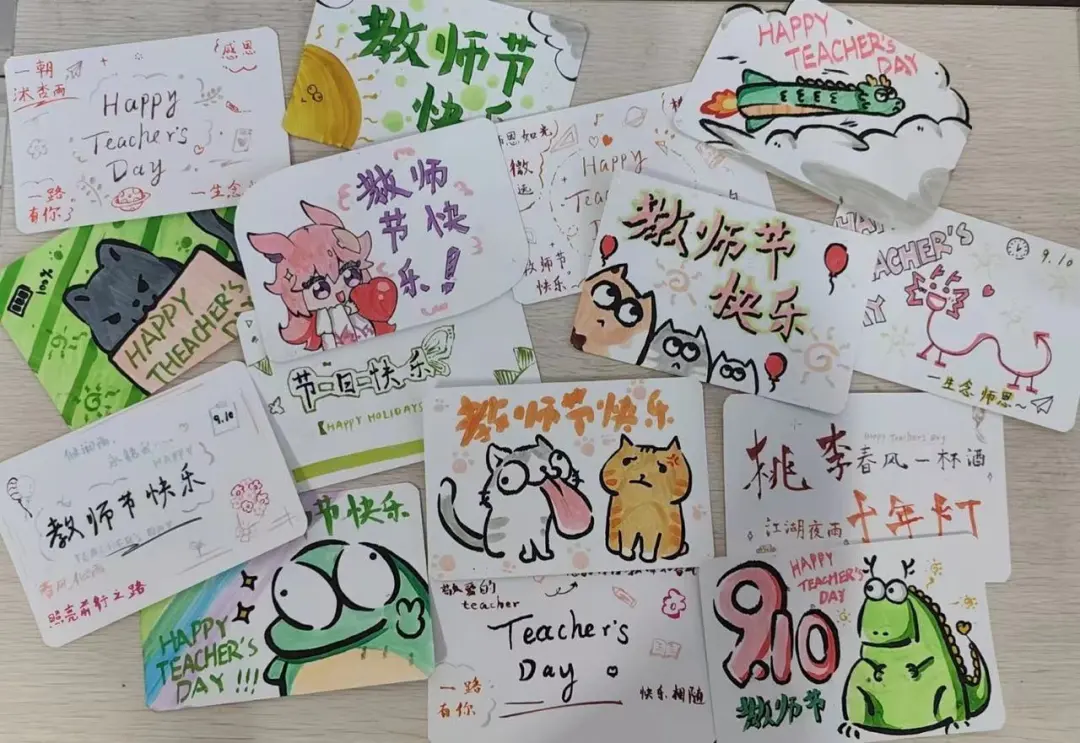 一朝
沐杏雨
感恩
Happy
Teacher's
Day
一路
有你
一生念
教师节
快乐
HAPPY
TEACHER'S
DAY
教师
节快
乐!
恩如光
微
远
Happy
教师节
快乐~
教师节
快乐
TEACHER'S
9.10
一生念 师恩~
100%
HAPPY
THEACHER'S
节日快乐
HAPPY HOLIDAYS
教师节快乐
桃李春风一杯酒
Happy teacher's day
江湖夜雨
十年灯
9.10
HAPPY
教师节快乐
TEACHER'S DAY
照亮前行之路
节快乐
HAPPY
TEACHER'S
DAY !!!
敬爱的
teacher
Teacher's
Day
一路
有你
快乐相随
9.10
HAPPY
TEACHER'S
DAY
教师节